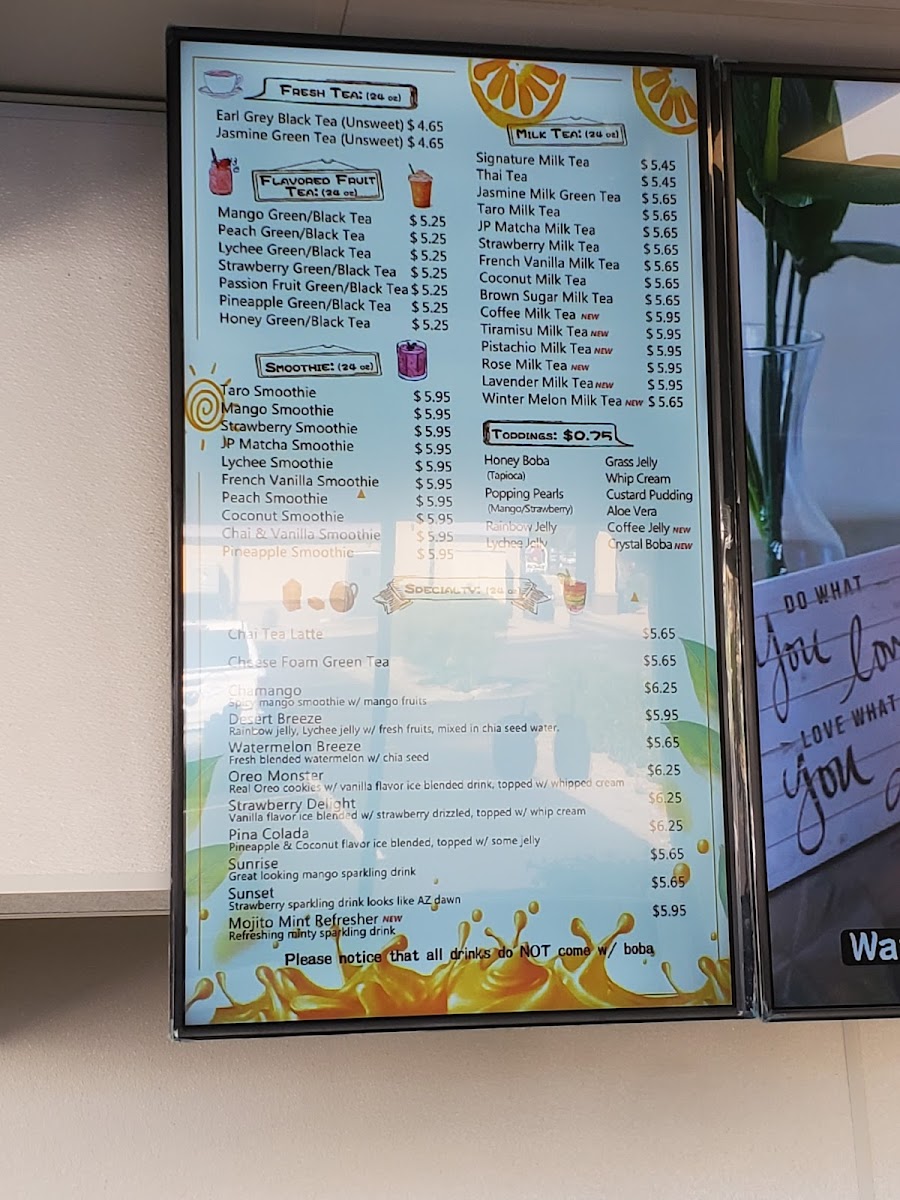 FRESH TEA: (24 oz)
Earl Grey Black Tea (Unsweet) $ 4.65
Jasmine Green Tea (Unsweet) $ 4.65
FLAVORED FRUIT
TEA: (24 oz)
Mango Green/Black Tea $ 5.25
Peach Green/Black Tea $ 5.25
Lychee Green/Black Tea $ 5.25
Strawberry Green/Black Tea $ 5.25
Passion Fruit Green/Black Tea $ 5.25
Pineapple Green/Black Tea $ 5.25
Honey Green/Black Tea $ 5.25
SMOOTHIE: (24 oz)
Taro Smoothie $ 5.95
Mango Smoothie $ 5.95
Strawberry Smoothie $ 5.95
JP Matcha Smoothie $ 5.95
Lychee Smoothie $ 5.95
French Vanilla Smoothie $ 5.95
Peach Smoothie $ 5.95
Coconut Smoothie $ 5.95
Chai & Vanilla Smoothie $ 5.95
Pineapple Smoothie $ 5.95
MILK TEA: (24 oz)
Signature Milk Tea $ 5.45
Thai Tea $ 5.45
Jasmine Milk Green Tea $ 5.65
Taro Milk Tea $ 5.65
JP Matcha Milk Tea $ 5.65
Strawberry Milk Tea $ 5.65
French Vanilla Milk Tea $ 5.65
Coconut Milk Tea $ 5.65
Brown Sugar Milk Tea $ 5.65
Coffee Milk Tea NEW $ 5.95
Tiramisu Milk Tea NEW $ 5.95
Pistachio Milk Tea NEW $ 5.95
Rose Milk Tea NEW $ 5.95
Lavender Milk Tea NEW $ 5.95
Winter Melon Milk Tea NEW $ 5.65
TODDINGS: $0.75
Honey Boba
(Tapioca)
Popping Pearls
(Mango/Strawberry)
Rainbow Jelly
Lychee Jelly
Grass Jelly
Whip Cream
Custard Pudding
Aloe Vera
Coffee Jelly NEW
Crystal Boba NEW
SPECIALTY: (24 oz)
Chai Tea Latte $5.65
Cheese Foam Green Tea $5.65
Chamango $6.25
Spicy mango smoothie w/ mango fruits
Desert Breeze $5.95
Rainbow jelly, Lychee jelly w/ fresh fruits, mixed in chia seed water.
Watermelon Breeze $5.65
Fresh blended watermelon w/ chia seed
Oreo Monster $6.25
Real Oreo cookies w/ vanilla flavor ice blended drink, topped w/ whipped cream
Strawberry Delight $6.25
Vanilla flavor ice blended w/ strawberry drizzled, topped w/ whip cream
Pina Colada $6.25
Pineapple & Coconut flavor ice blended, topped w/ some jelly
Sunrise $5.65
Great looking mango sparkling drink
Sunset $5.65
Strawberry sparkling drink looks like AZ dawn
Mojito Mint Refresher NEW $5.95
Refreshing minty sparkling drink
Please notice that all drinks do NOT come w/ boba
DO WHAT
you lov
LOVE WHAT
you
Wa